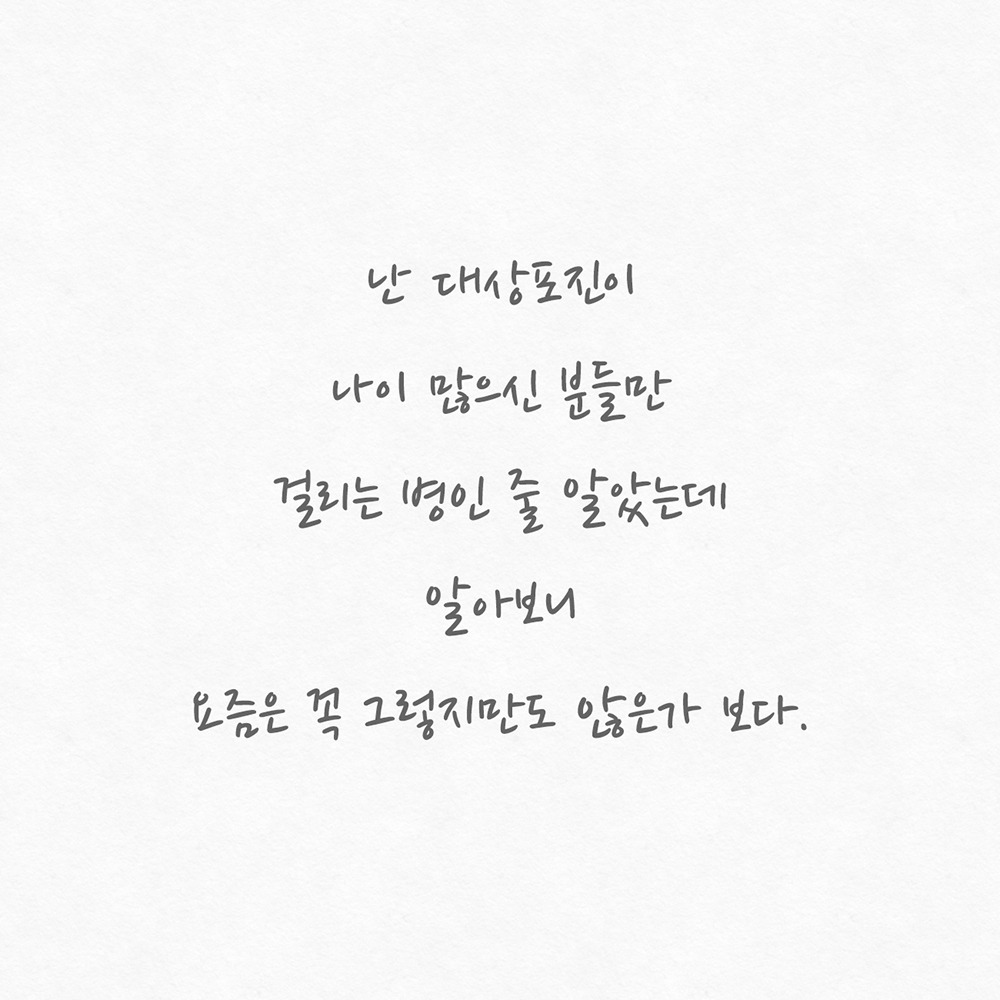 난 대상포진이
나이 많으신 분들만
걸리는 병인 줄 알았는데
알아보니
요즘은 꼭 그렇지만도 않은가 보다.